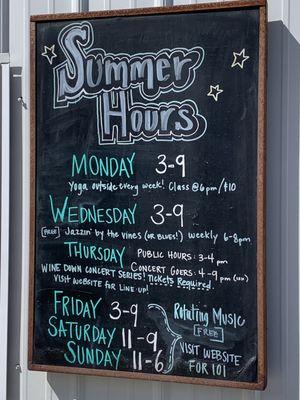 Summer
Hours
MONDAY 3-9
Yoga outside every week! Class @ 6pm/$10
WEDNESDAY 3-9
FREE Jazzin' by the vines (or blues!) weekly 6-8pm
THURSDAY PUBLIC HOURS: 3-4 pm
WINE DOWN CONCERT SERIES! CONCERT GOERS: 4-9 pm
Tickets Required.
VISIT WEBSITE FOR LINE UP!
FRIDAY 3-9
SATURDAY 11-9
SUNDAY 11-6
Rotating Music
FREE
VISIT WEBSITE
FOR 101